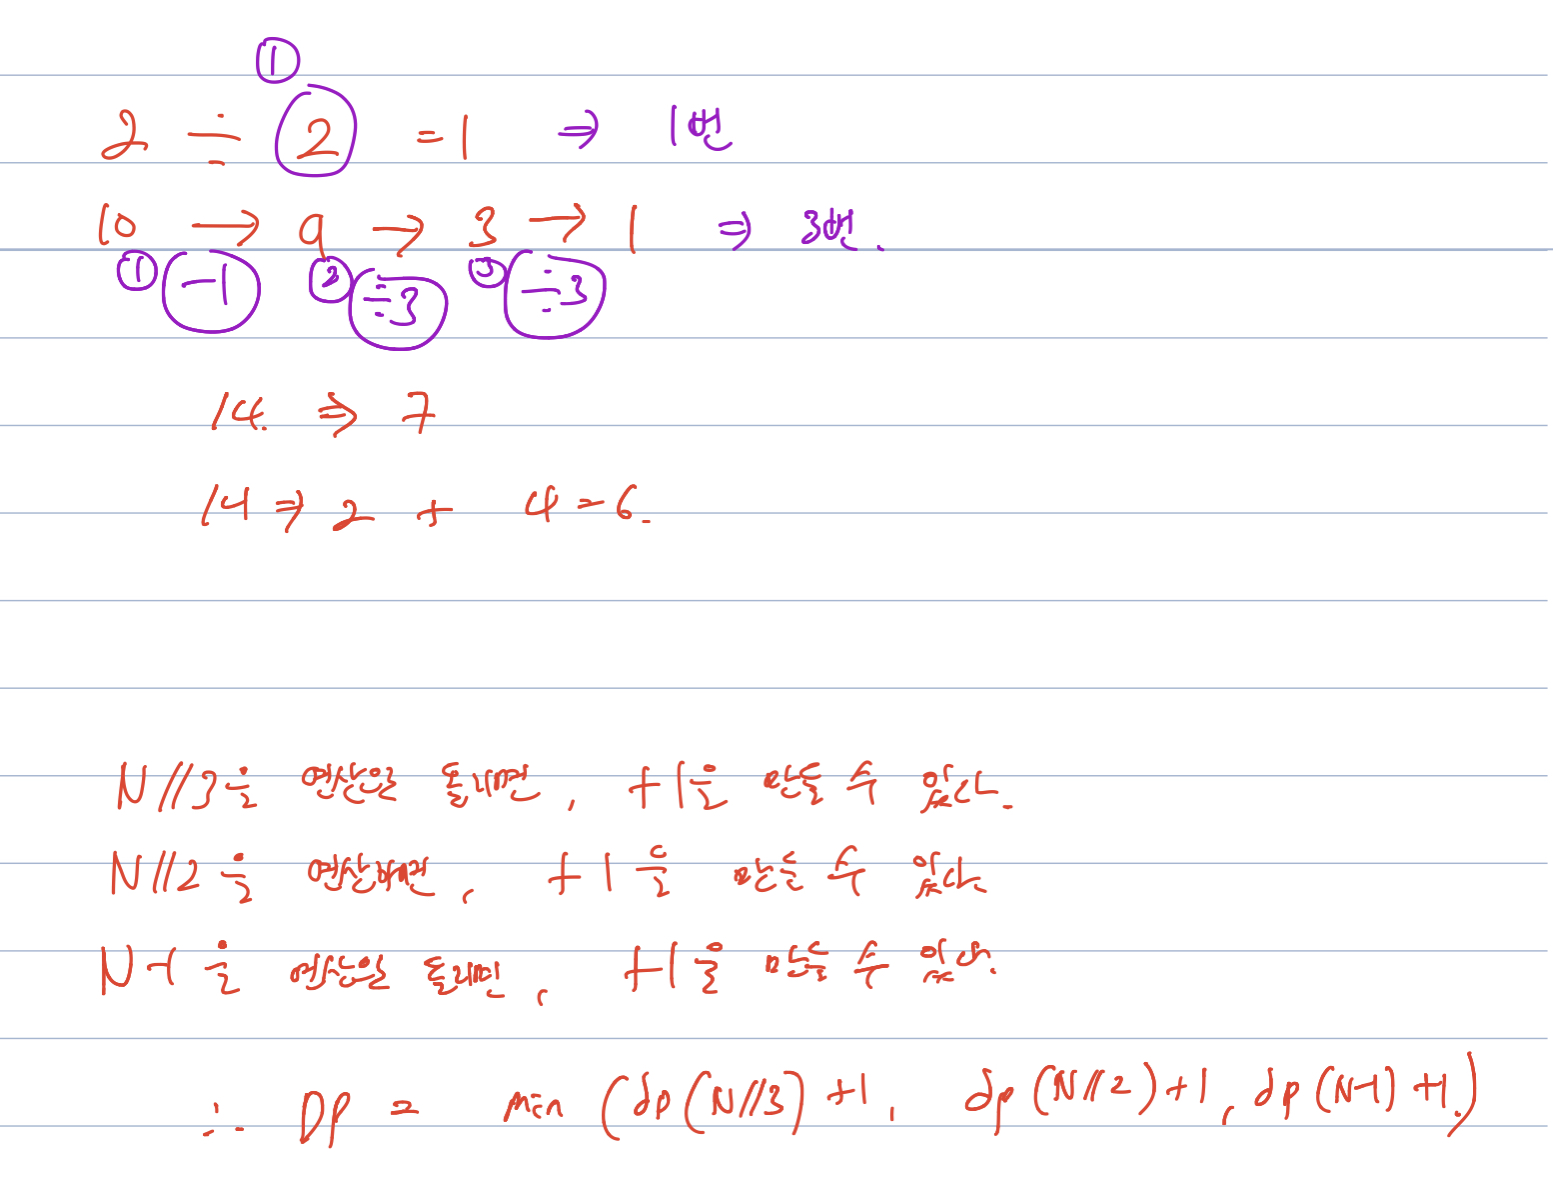 ①
2 ÷ 2 = 1 ⇒ 1번
10 → 9 → 3 → 1 ⇒ 3번.
① -1 ② ÷3 ③ ÷3
14. ⇒ 7
14 ⇒ 2 + 4 = 6.
N//3을 연산을 돌리면, +1을 만들 수 있다.
N//2을 연산하면, +1을 만들 수 있다.
N-1을 연산을 돌리면, +1을 만들 수 있다.
∴ DP = min (dp(N//3) +1, dp(N//2)+1, dp(N-1) +1.)